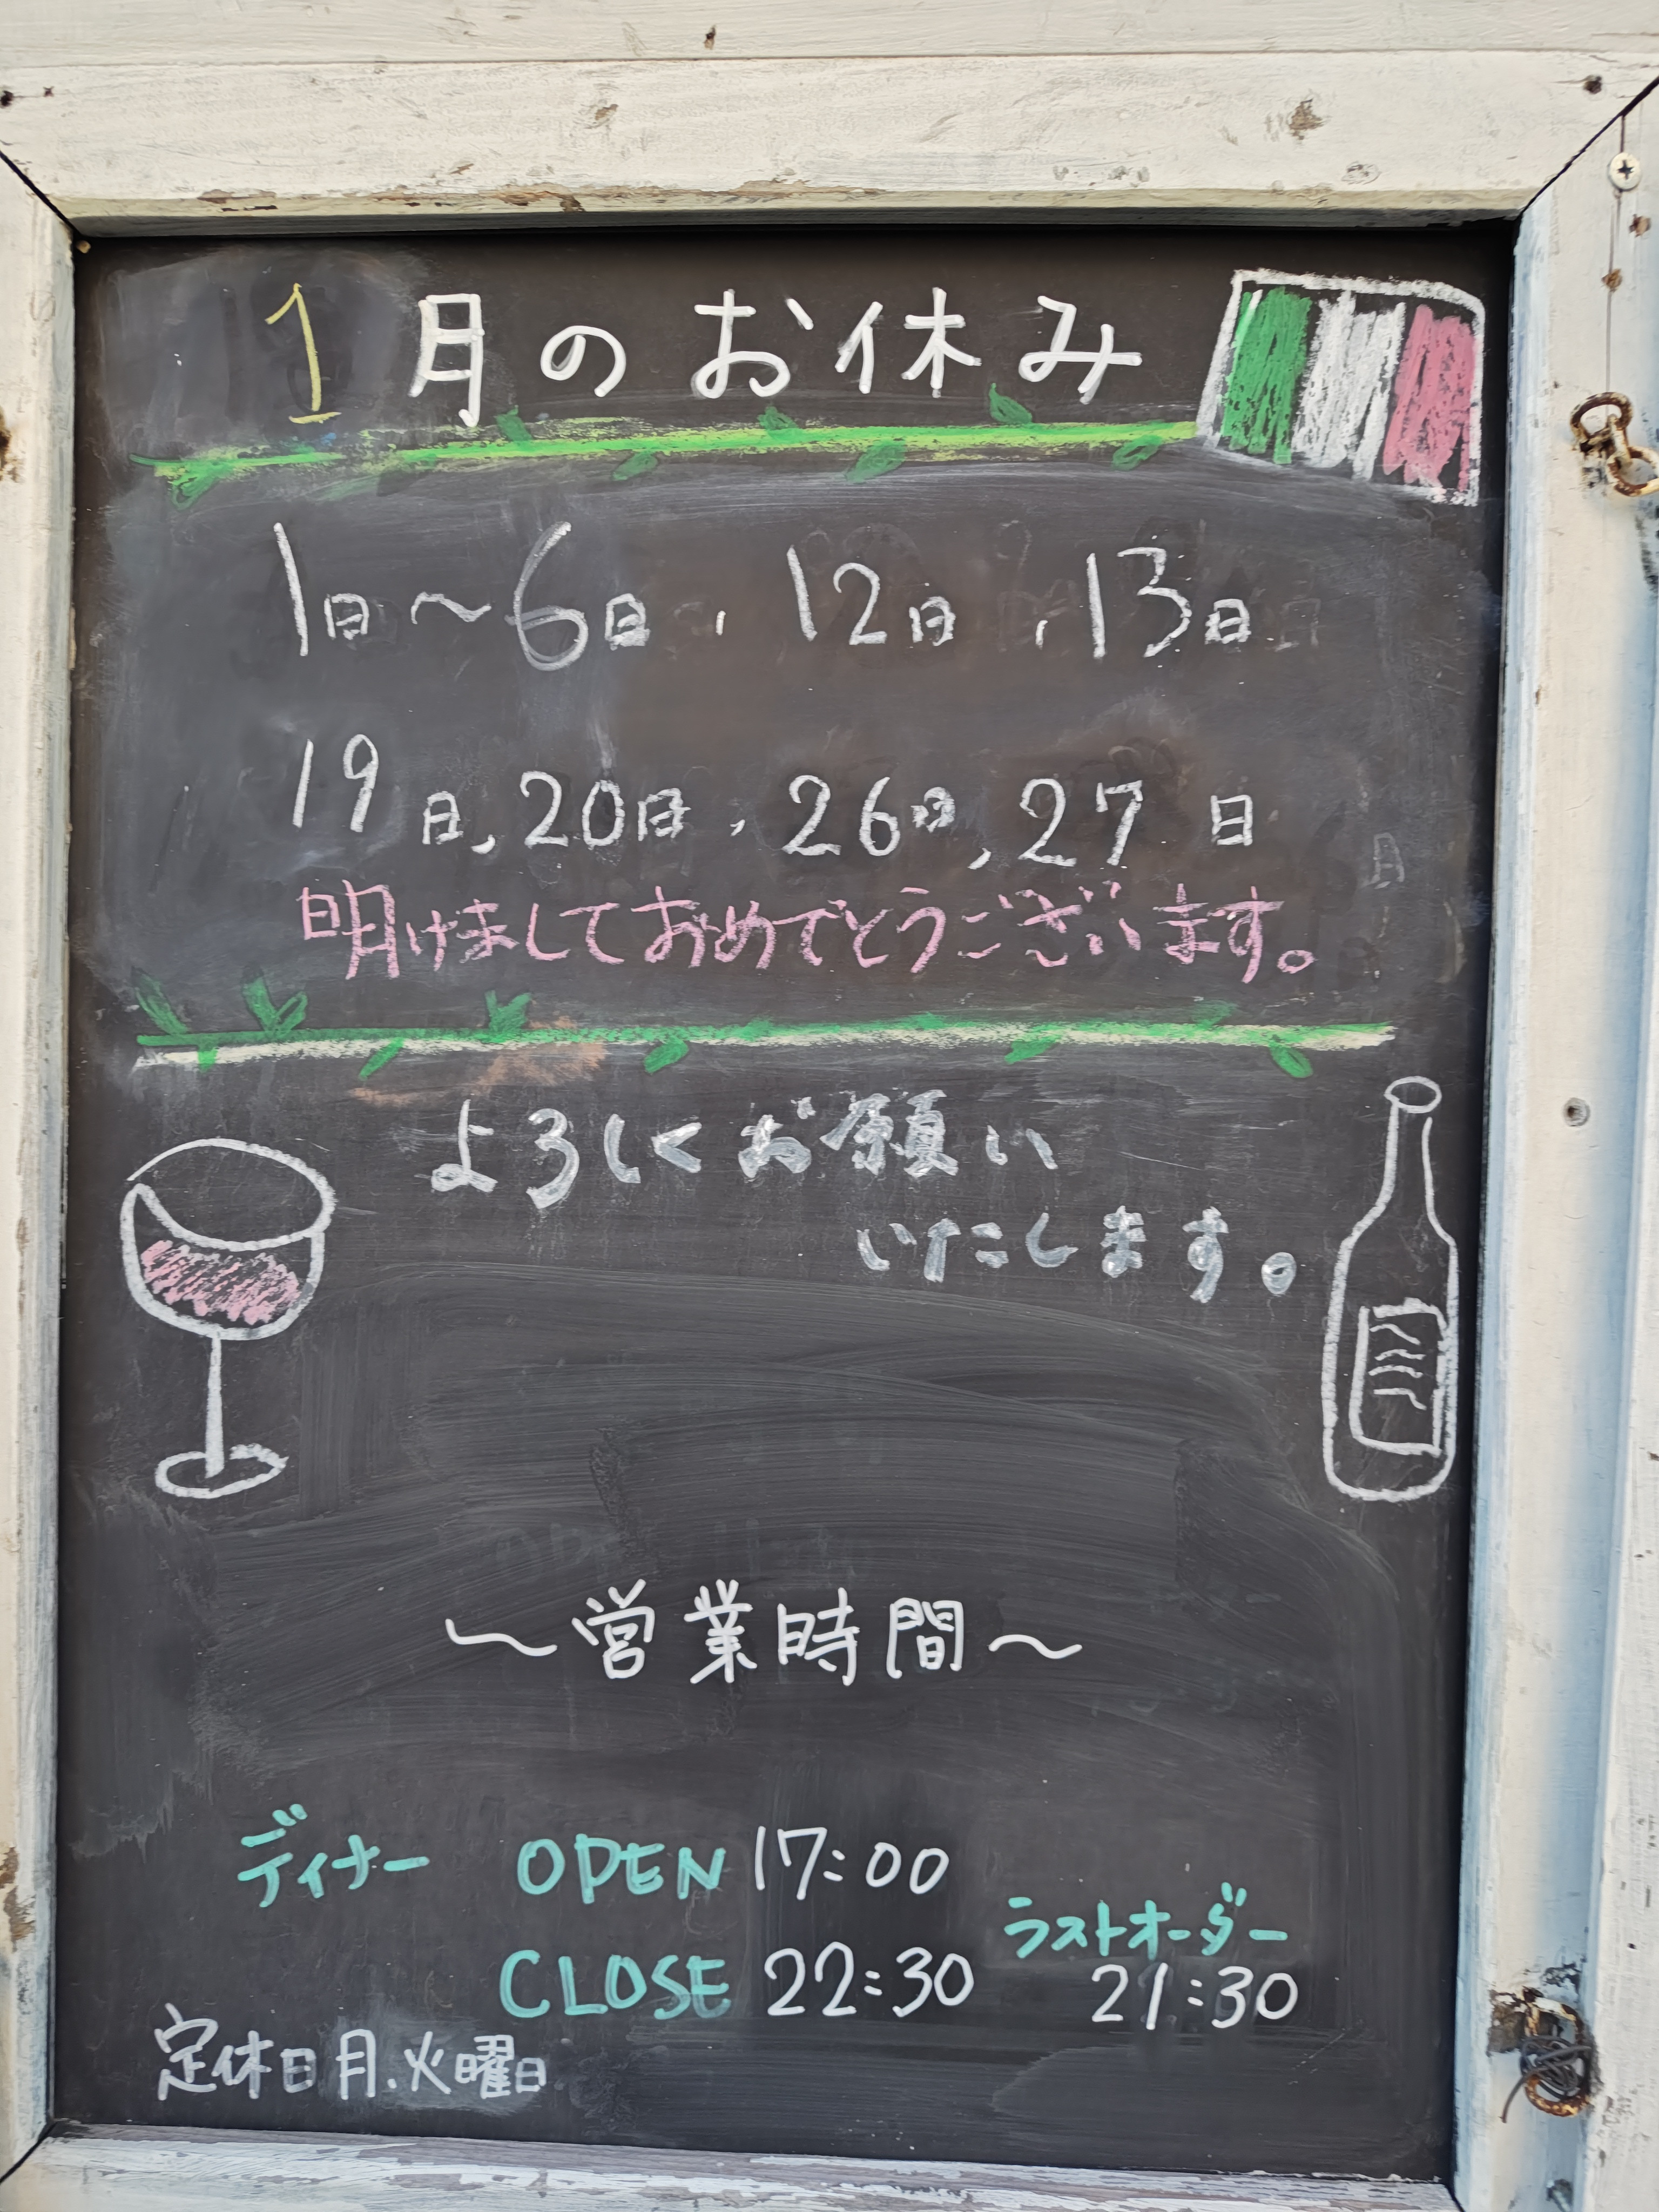 1月のお休み
1日〜6日, 12日, 13日
19日, 20日, 26日, 27日
明けましておめでとうございます。
よろしくお願い
いたします。
〜営業時間〜
ディナー OPEN 17:00
ラストオーダー
CLOSE 22:30 21:30
定休日月.火曜日